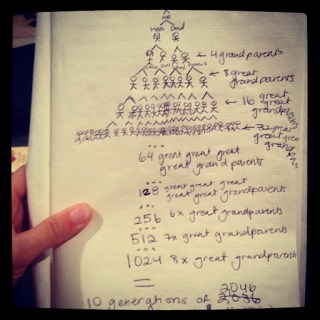 me
mom Dad
4 grandparents
8 great
grandparents
16 great,
great
grandparents
32 great
great great
grand
64 great great great
great grandparents
128 great great great
great great grandparents
256 6x great grandparents
512 7x great grandparents
1024 8x great grandparents
2046
10 generations of 2036